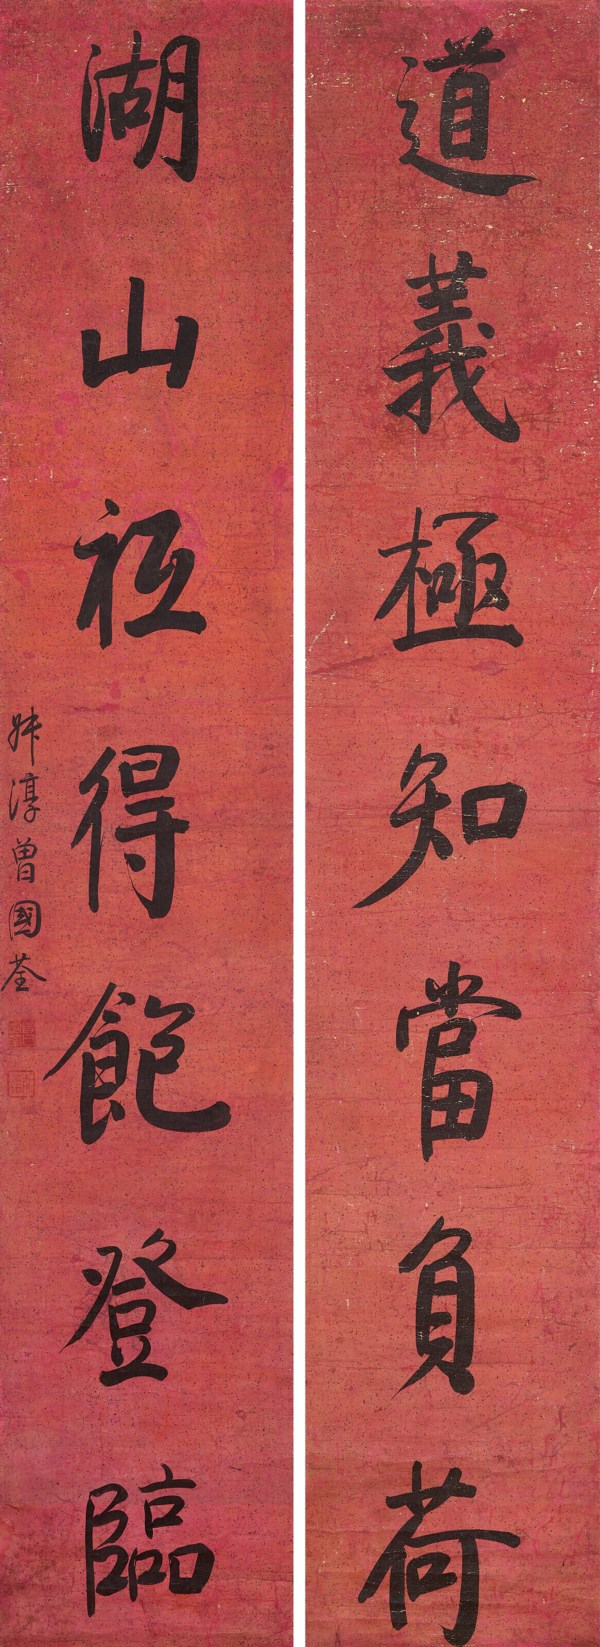 道義極知當負荷
湖山祇得飽登臨
曾國荃